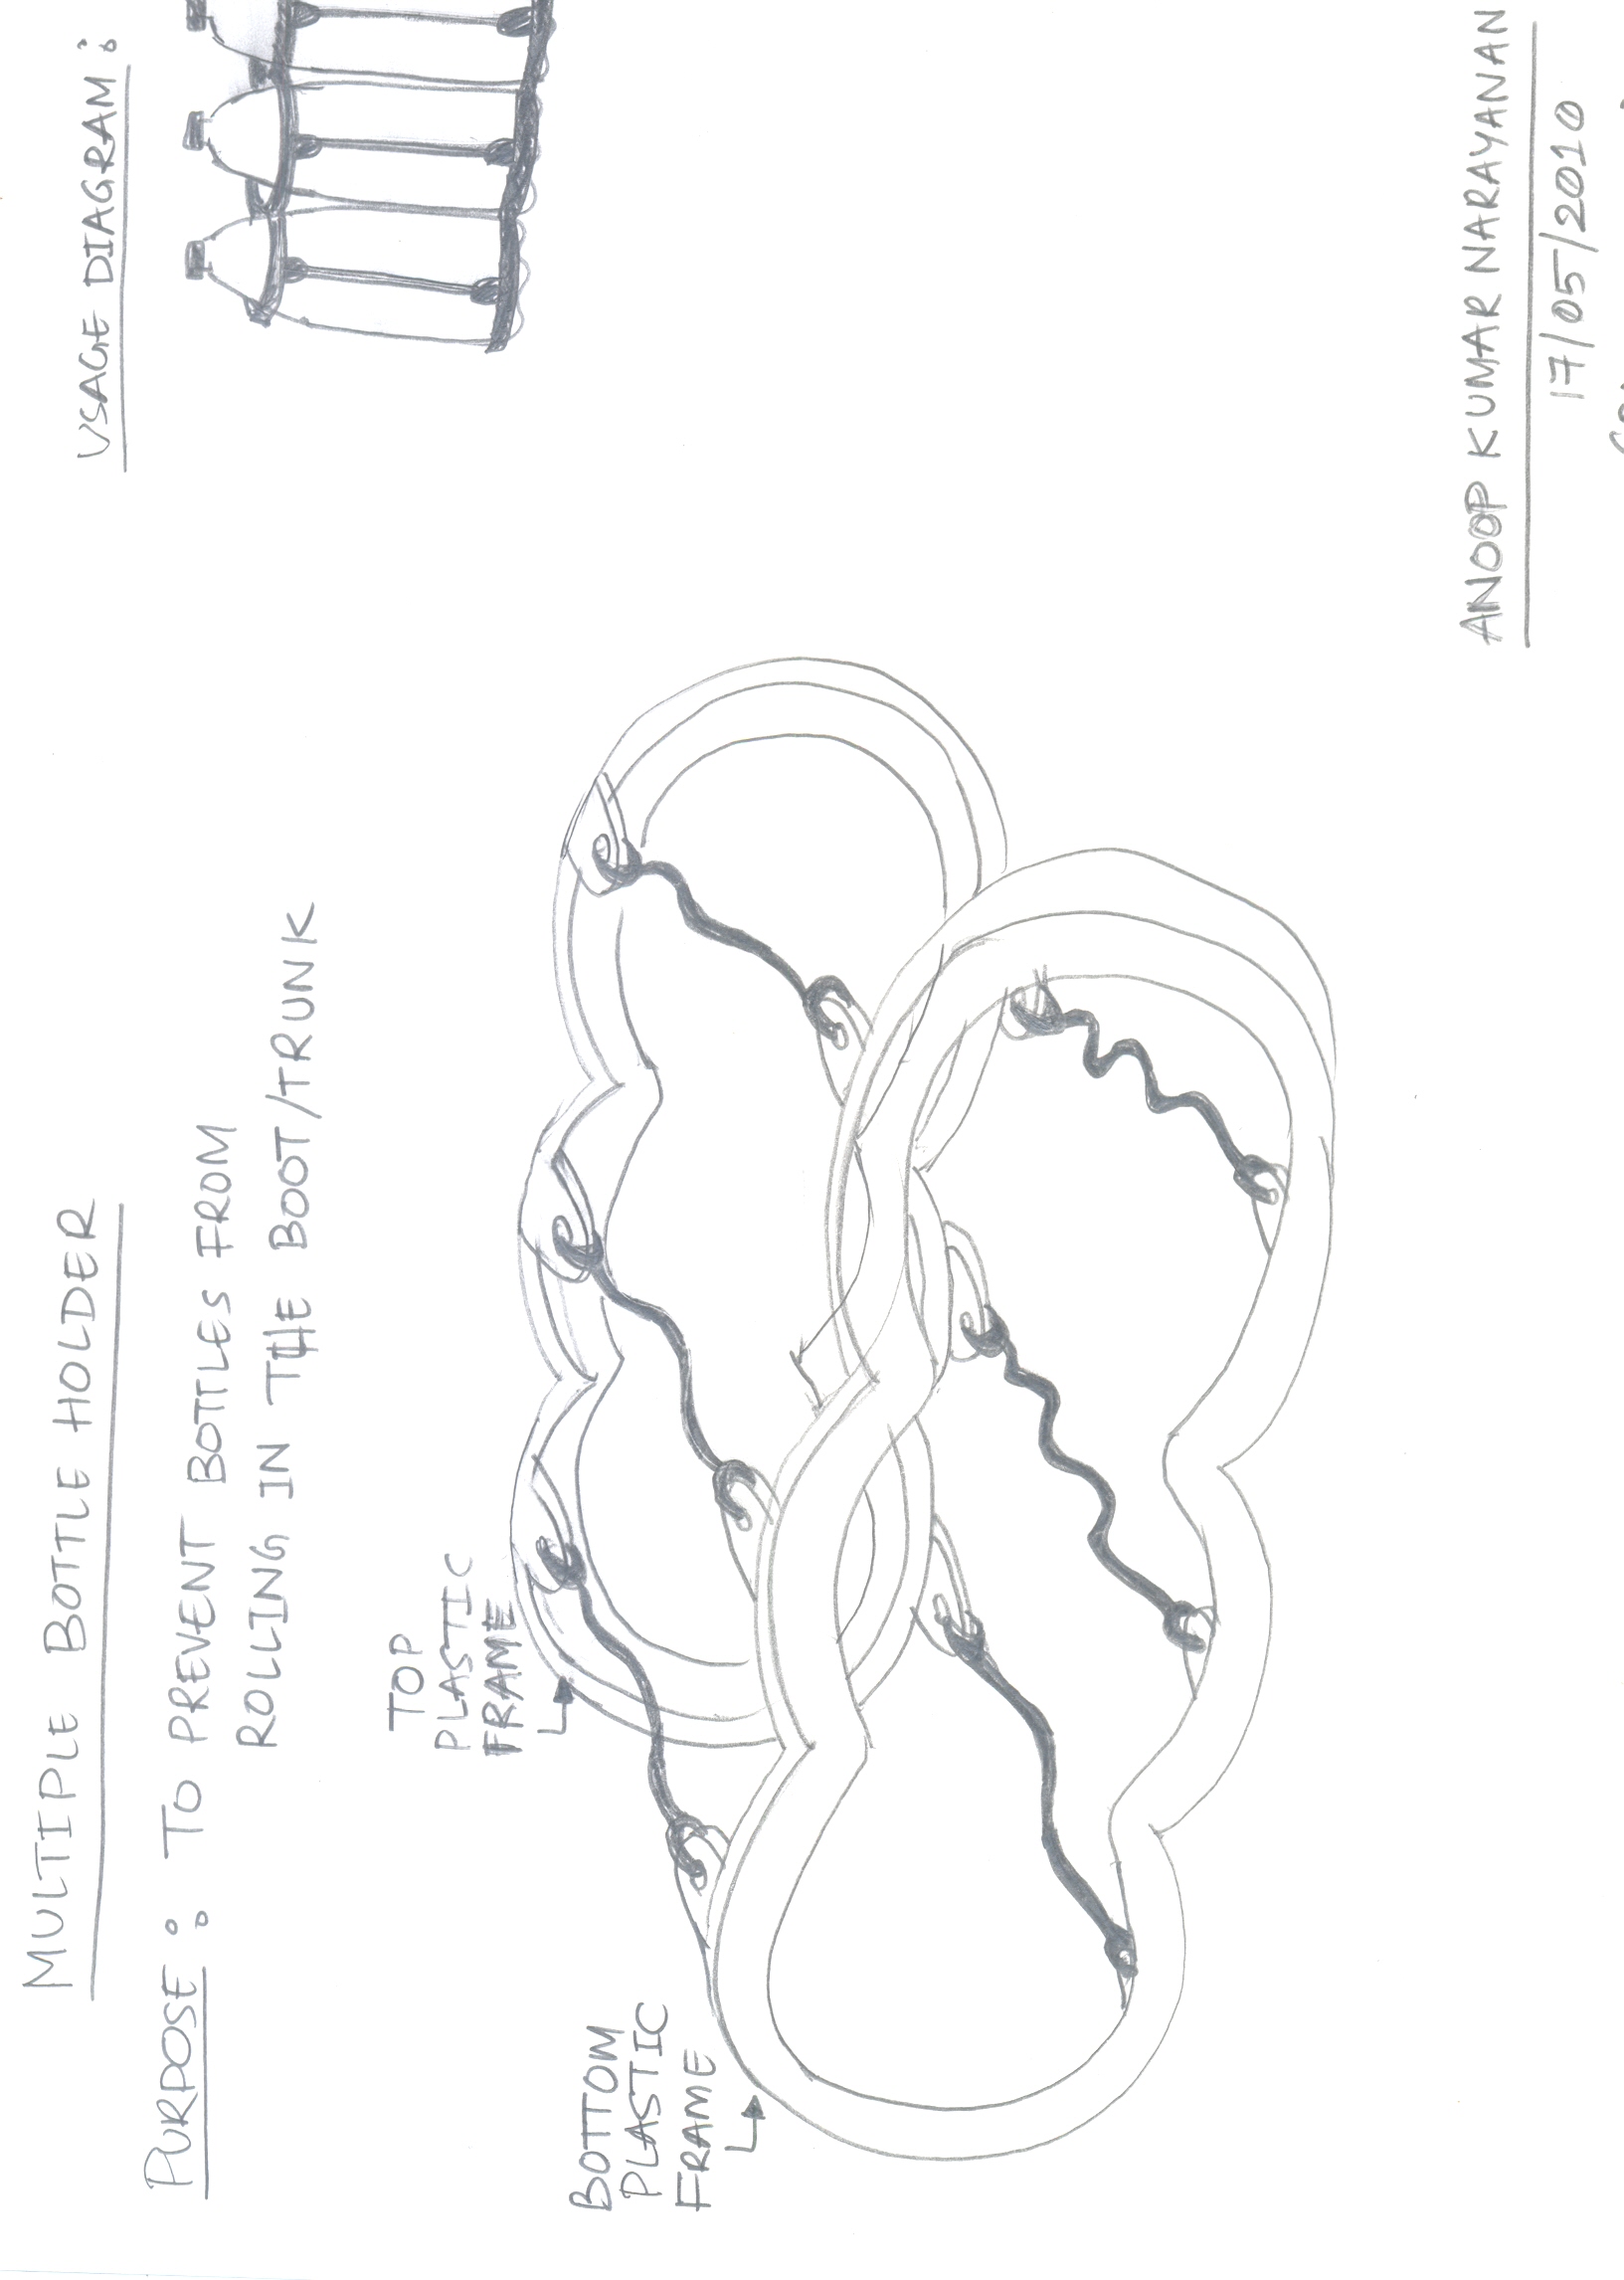 MULTIPLE BOTTLE HOLDER
PURPOSE : TO PREVENT BOTTLES FROM
ROLLING IN THE BOOT/TRUNK
TOP
PLASTIC
FRAME
BOTTOM
PLASTIC
FRAME
USAGE DIAGRAM :
ANOOP KUMAR NARAYANAN
17/05/2010